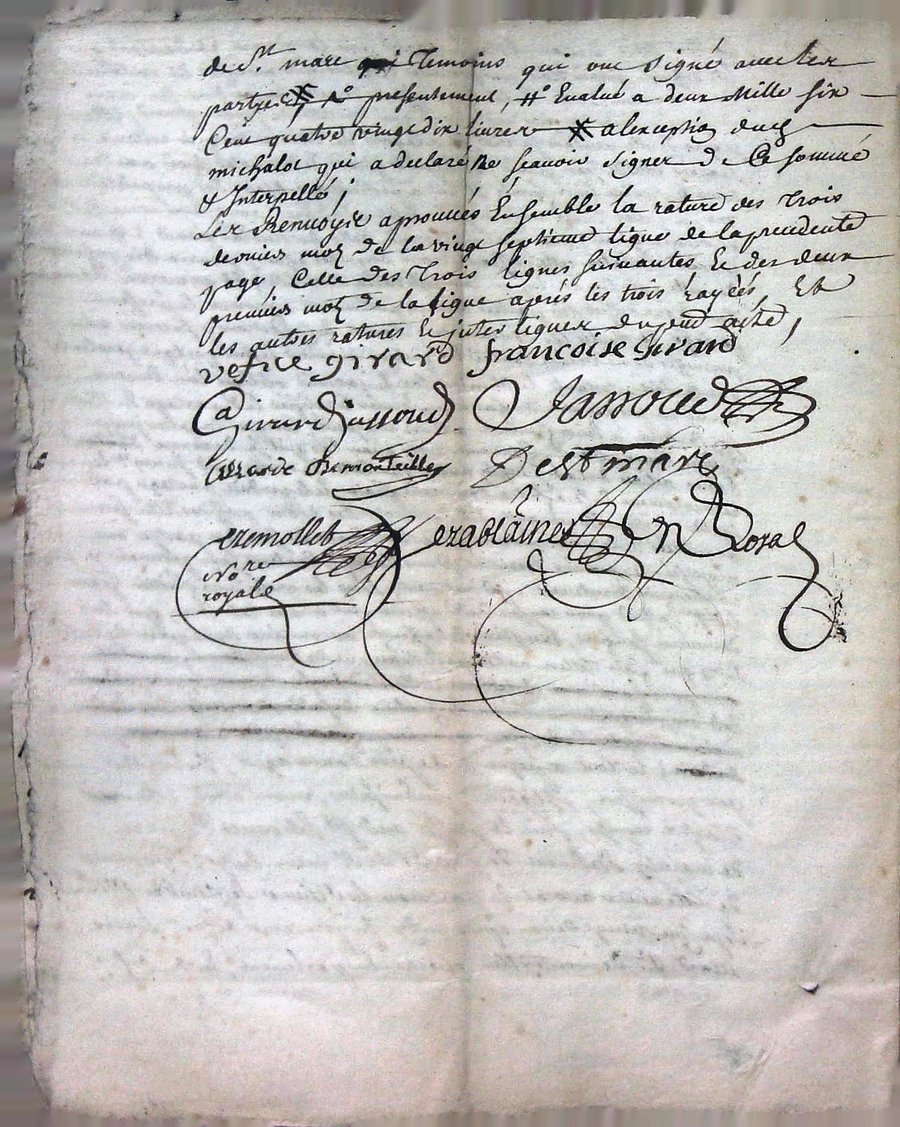 de St. marc temoins qui ont signé avec les
parties # No presentement, #o Evalué a deux Mille six
Cent quatre vingt dix livres # a lexception dud
michalot qui a declaré ne scavoir signer de Ce sommé
& Interpellé;
Les Renvoyée aprouvés Ensemble la rature des trois
derniers mots de la vingt septieme ligne de la precedente
page, Celle des trois lignes suivantes Et des deux
premiers mots de la ligne aprés les trois rayées, Et
les autres ratures Et interlignes du pnt acte,
vefve girard francoise girard
Girard Jassoud Jassoud
De St marc
No re
royale